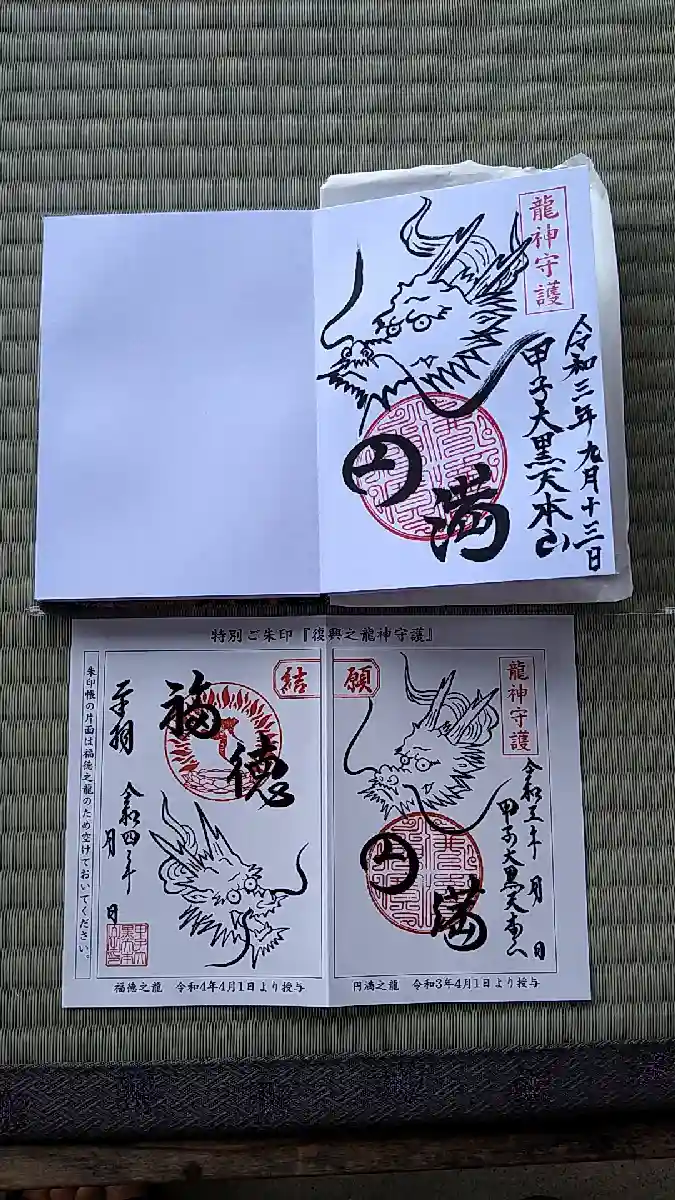 龍神守護
令和三年九月十三日
甲子大黒天本山
円満
特別ご朱印『復興之龍神守護』
結願
龍神守護
令和三年 月 日
甲子大黒天本山
円満
福徳
令和四年 月 日
朱印帳の片面は福徳之龍のため空けておいてください。
福徳之龍 令和4年4月1日より授与
円満之龍 令和3年4月1日より授与